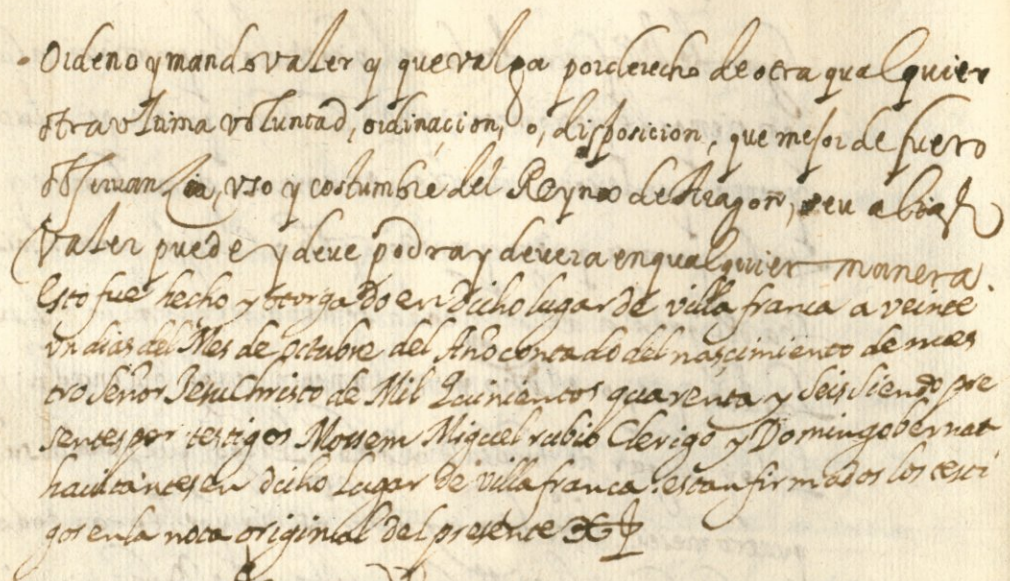 Ordeno y mando valer y que valga por derecho de otra qualquier
otra ultima voluntad, ordinacion, o, disposicion, que mejor de fuero
obseruanzia, uso y costumbre del Reyno de Aragon, seu alias
valer puede y deve podra y devera en qualquier manera.
Esto fue hecho y otorgado en dicho lugar de villa franca a veinte
un dias del Mes de octubre del Año contado del nascimiento de nues
tro Señor Jesu Christo de Mil Quinientos quarenta y Seis siendo pre
sentes por testigos Mossem Miguel rubio Clerigo y Domingo bernat
hauitantes en dicho lugar de villa franca. estan firmados los testi
gos en la nota original del presente